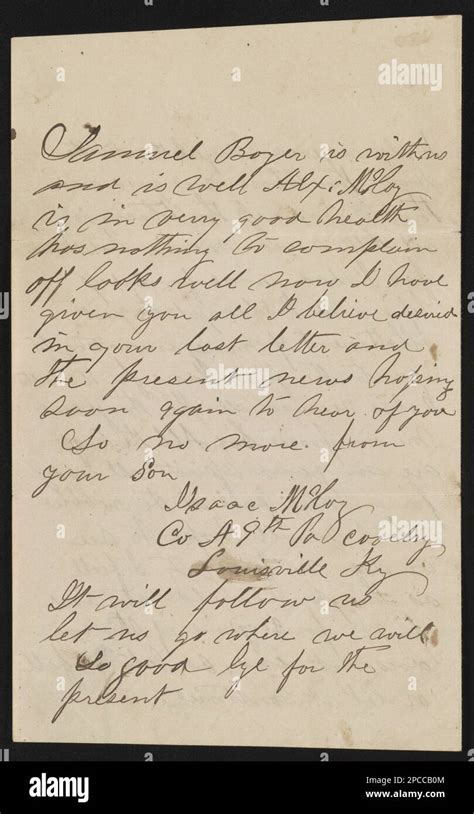 Samuel Boyer is with us
and is well Alx: McCoy
is in very good health
has nothing to complain
off looks well now I have
given you all I believe desired
in your last letter and
the present news hoping
soon again to hear of you
So no more from
your Son
Isaac McCoy
Co A 9th Pa
Louisville Ky.
It will follow us
let us go where we will
So good bye for the
present
alamy
Image ID: 2PCCB0M
www.alamy.com